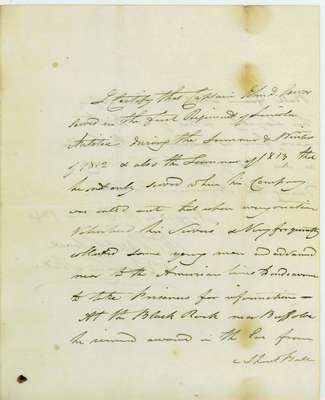 I Certify that Captain John D. Servos
Served in the first Regiment of Lincoln
Militia during the Summer & Winter
of 1812 & also the Summer of 1813 that
he not only served when his Company
was called out but when every occasion
Volunteered his Services & very frequently
Collected some young men and advanced
near to the American lines to endeavour
to take Prisoners for information —
At the Black Rock near Buffaloe
he received a wound in the Ear from
a Shock Ball